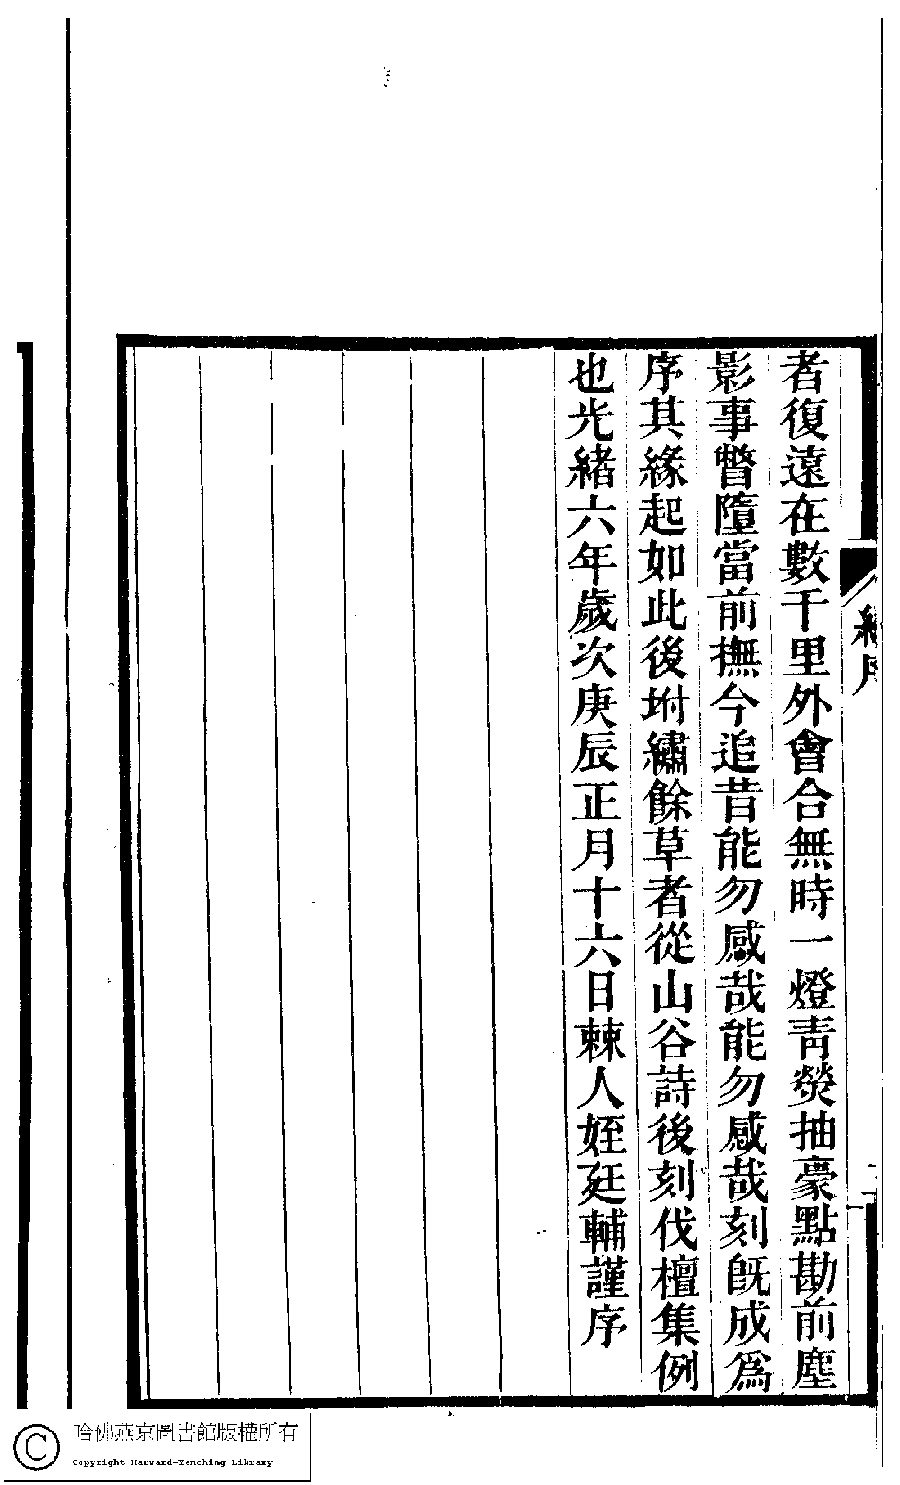 者復遠在數千里外會合無時一燈靑熒抽豪點勘前塵
影事瞥墮當前撫今追昔能勿感哉能勿感哉刻旣成爲
序其緣起如此後坿繡餘草者從山谷詩後刻伐檀集例
也光緒六年歲次庚辰正月十六日棘人姪廷輔謹序
哈佛燕京圖書館版權所有
Copyright Harvard-Yenching Library